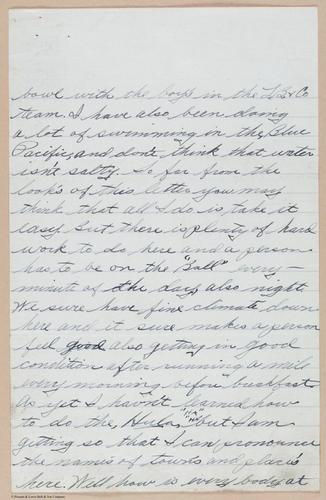 bowl with the boys in the H.S. & Co
team. I have also been doing
a lot of swimming in the Blue
Pacific, and don't think that water
isn't salty. So far from the
look's of this letter you may
think that all I do is, take it
easy but there is plenty of hard
work to do here and a person
has to be on the "Ball" every-
minute of the day, also night.
We sure have fine climate down
here and it sure makes a person
feel good also getting in good
condition after running a mile
every morning before breakfast.
As yet I havn't learned how
to do the, Hula, "HA" but I am
getting so that I can pronounce
the names of towns and place's
here. Well how is every body at